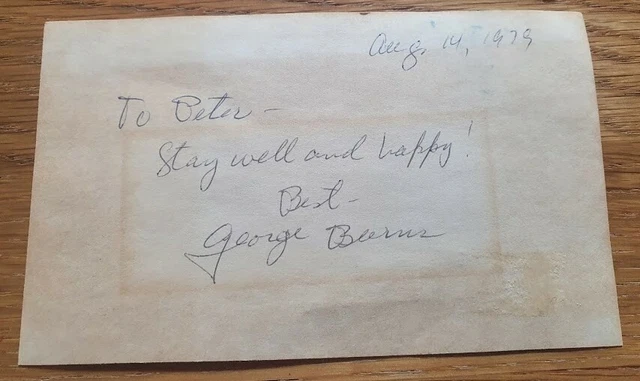 Aug. 14, 1979
To Peter -
Stay well and happy!
Best -
George Burns